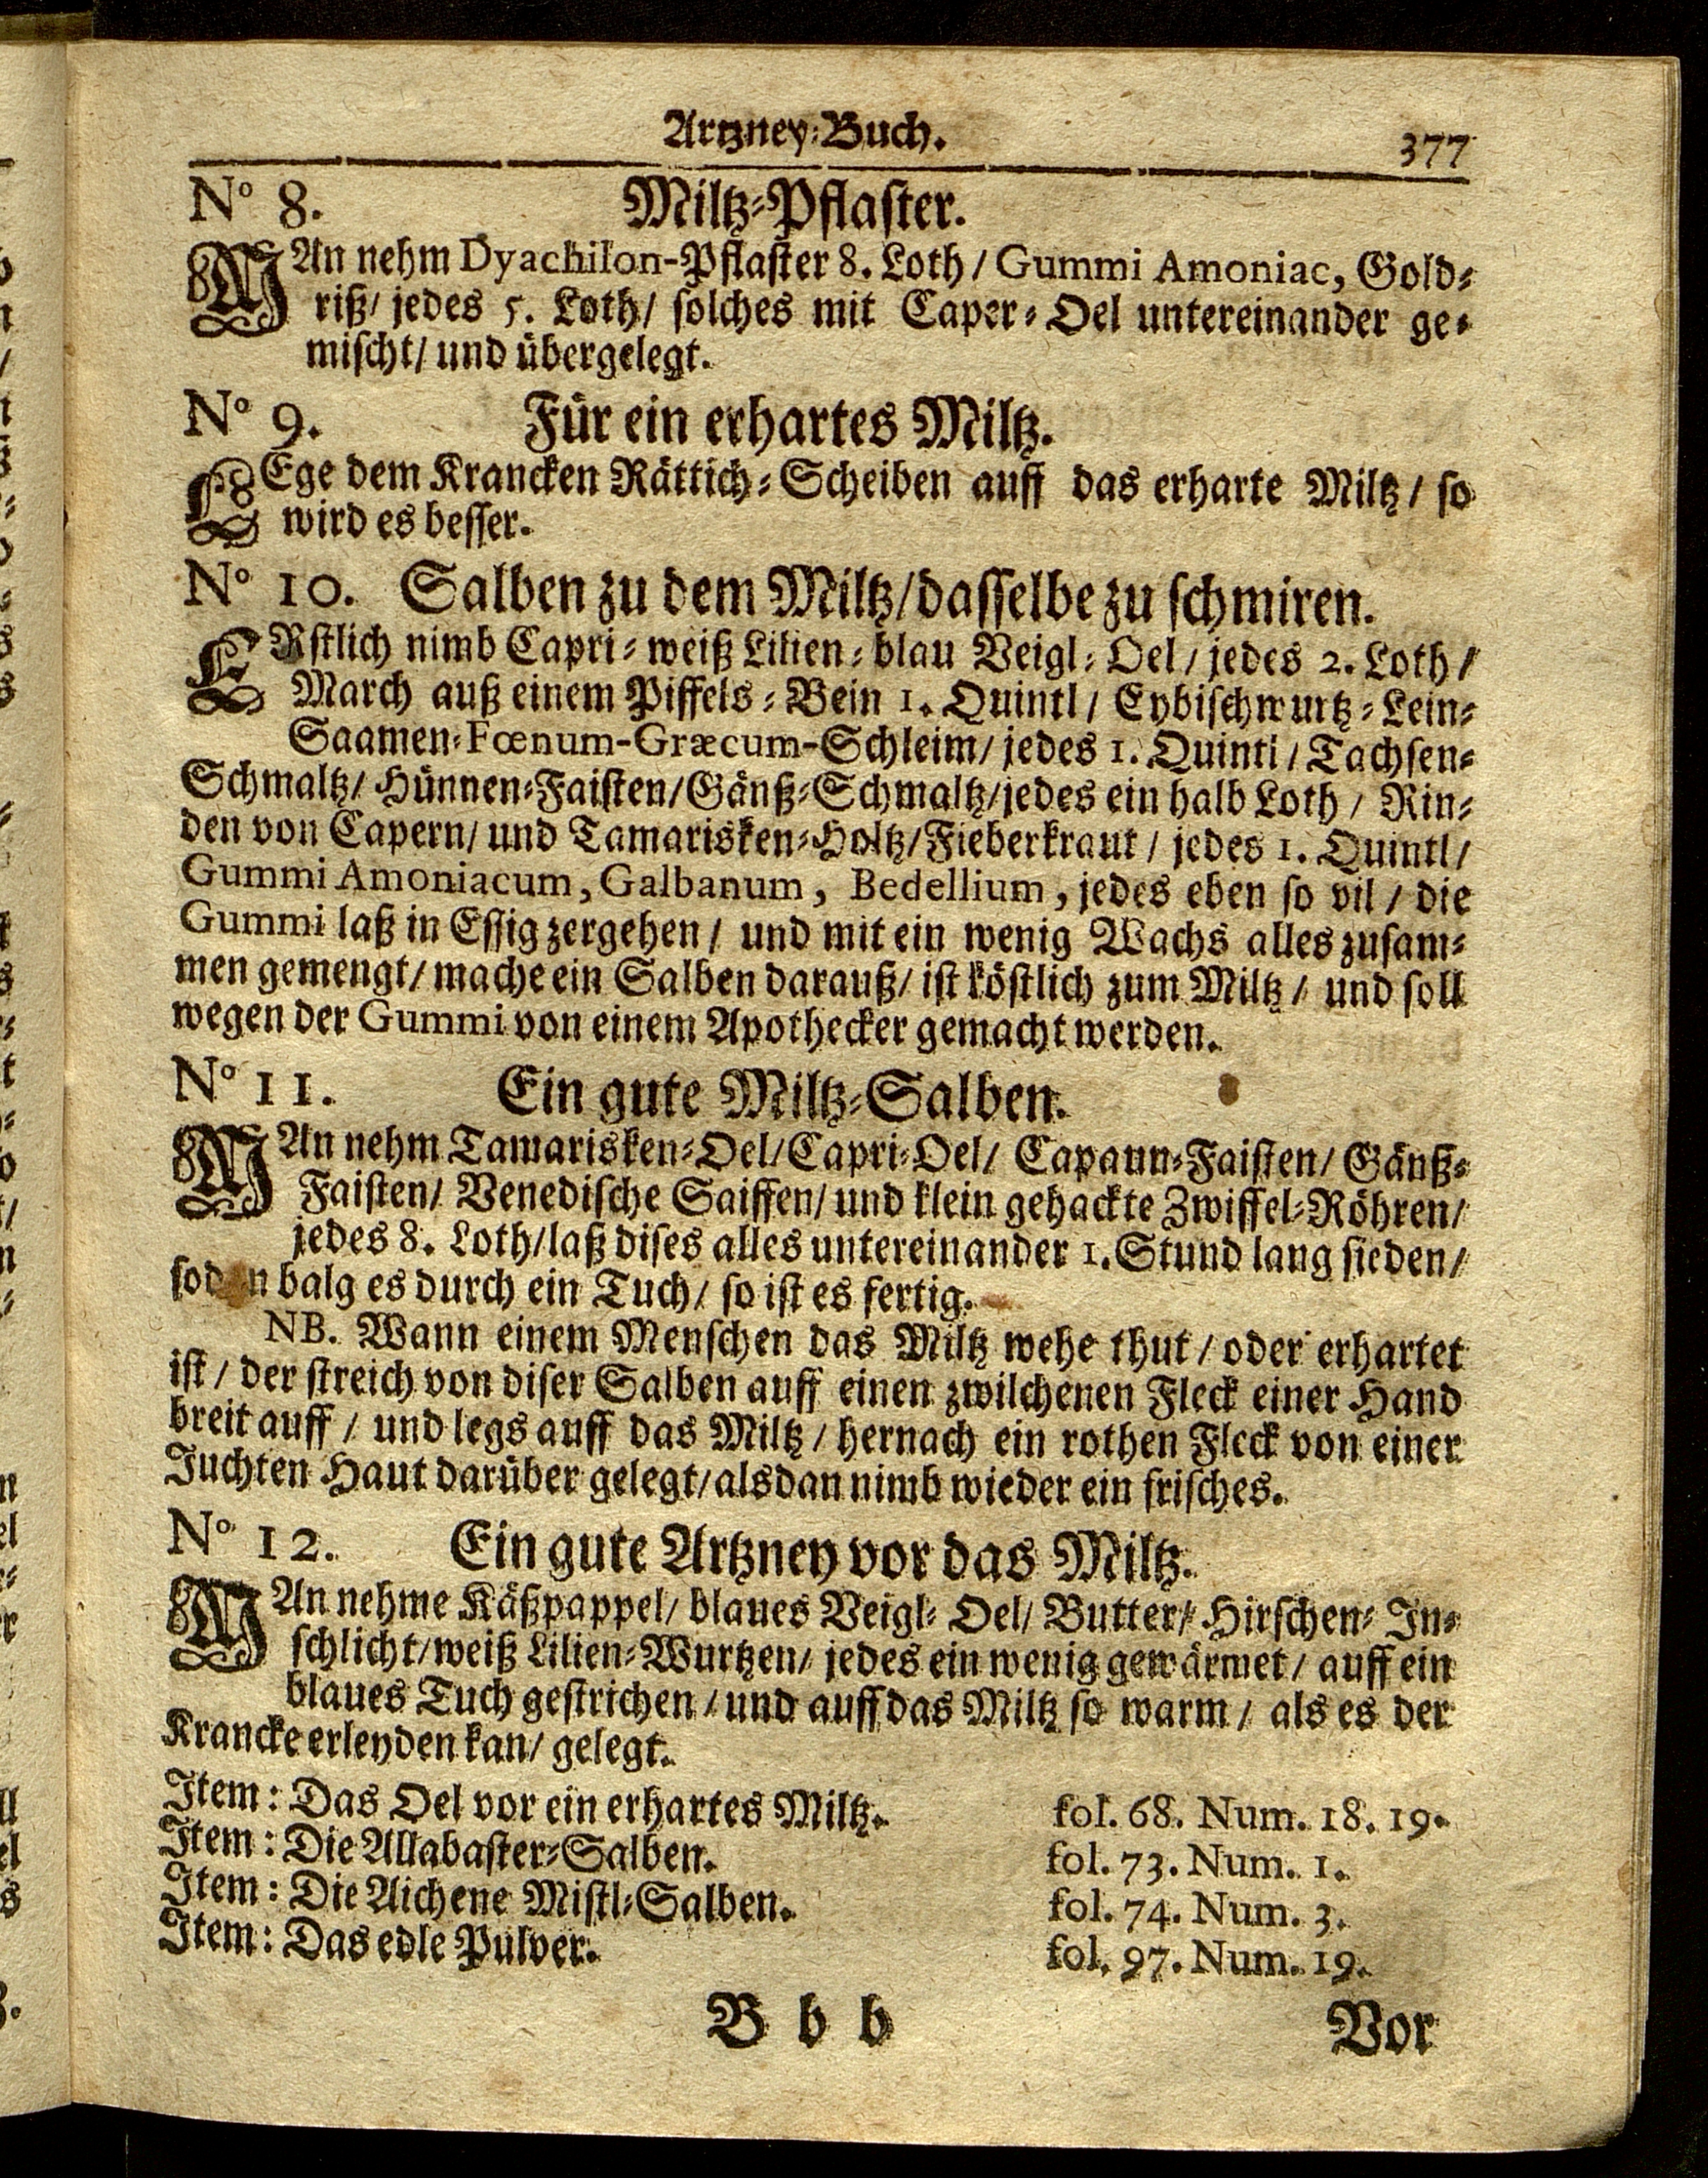 Artzney-Buch. 377
N° 8. Miltz-Pflaster.
MAn nehm Dyachilon-Pflaster 8. Loth / Gummi Amoniac, Gold-
riß / jedes 5. Loth / solches mit Caper-Oel untereinander ge-
mischt / und übergelegt.
N° 9. Für ein erhartes Miltz.
LEge dem Krancken Rättich-Scheiben auff das erharte Miltz / so
wird es besser.
N° 10. Salben zu dem Miltz / dasselbe zu schmiren.
ERstlich nimb Capri-weiß Lilien-blau Veigl-Oel / jedes 2. Loth /
March auß einem Piffels-Bein 1. Quintl / Eybischwurtz-Lein-
Saamen-Fœnum-Græcum-Schleim / jedes 1. Quintl / Tachsen-
Schmaltz / Hünnen-Faisten / Gänß-Schmaltz / jedes ein halb Loth / Rin-
den von Capern / und Tamarisken-Holtz / Fieberkraut / jedes 1. Quintl /
Gummi Amoniacum, Galbanum, Bedellium, jedes eben so vil / die
Gummi laß in Essig zergehen / und mit ein wenig Wachs alles zusam-
men gemengt / mache ein Salben darauß / ist köstlich zum Miltz / und soll
wegen der Gummi von einem Apothecker gemacht werden.
N° 11. Ein gute Miltz-Salben.
MAn nehm Tamarisken-Oel / Capri-Oel / Capaun-Faisten / Gänß-
Faisten / Venedische Saiffen / und klein gehackte Zwiffel-Röhren /
jedes 8. Loth / laß dises alles untereinander 1. Stund lang sieden /
balg es durch ein Tuch / so ist es fertig.
NB. Wann einem Menschen das Miltz wehe thut / oder erhartet
ist / der streich von diser Salben auff einen zwilchenen Fleck einer Hand
breit auff / und legs auff das Miltz / hernach ein rothen Fleck von einer
Juchten Haut darüber gelegt / alsdan nimb wieder ein frisches.
N° 12. Ein gute Artzney vor das Miltz.
MAn nehme Käßpappel / blaues Veigl-Oel / Butter / Hirschen-In-
schlicht / weiß Lilien-Wurtzen / jedes ein wenig gewärmet / auff ein
blaues Tuch gestrichen / und auff das Miltz so warm / als es der
Krancke erleyden kan / gelegt.
Item: Das Oel vor ein erhartes Miltz. fol. 68. Num. 18. 19.
Item: Die Allabaster-Salben. fol. 73. Num. 1.
Item: Die Aichene Mistl-Salben. fol. 74. Num. 3.
Item: Das edle Pulver. fol. 97. Num. 19.
B b b Vor